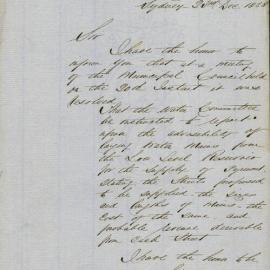 Sydney 23rd Dec. 1858
Sir
I have the honor to
inform you that at a meeting
of the Municipal Council held
on the 20th Instant it was
Resolved
That the Water Committee
be instructed to report
upon the advisability of
laying Water Mains from
the Low Level Reservoir
for the supply of Pyrmont
stating the Streets proposed
to be supplied the sizes
and lengths of Mains - the
cost of the same and
probable revenue derivable
from each Street
I have the honor to be